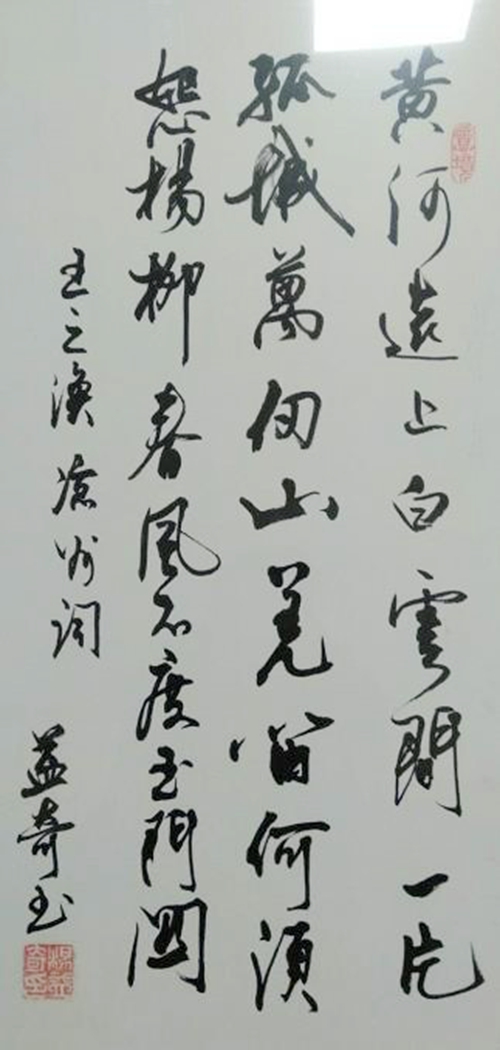 黄河遠上白雲間一片
孤城萬仞山羌笛何須
怨楊柳春風不度玉門關
王之渙涼州詞
益奇書